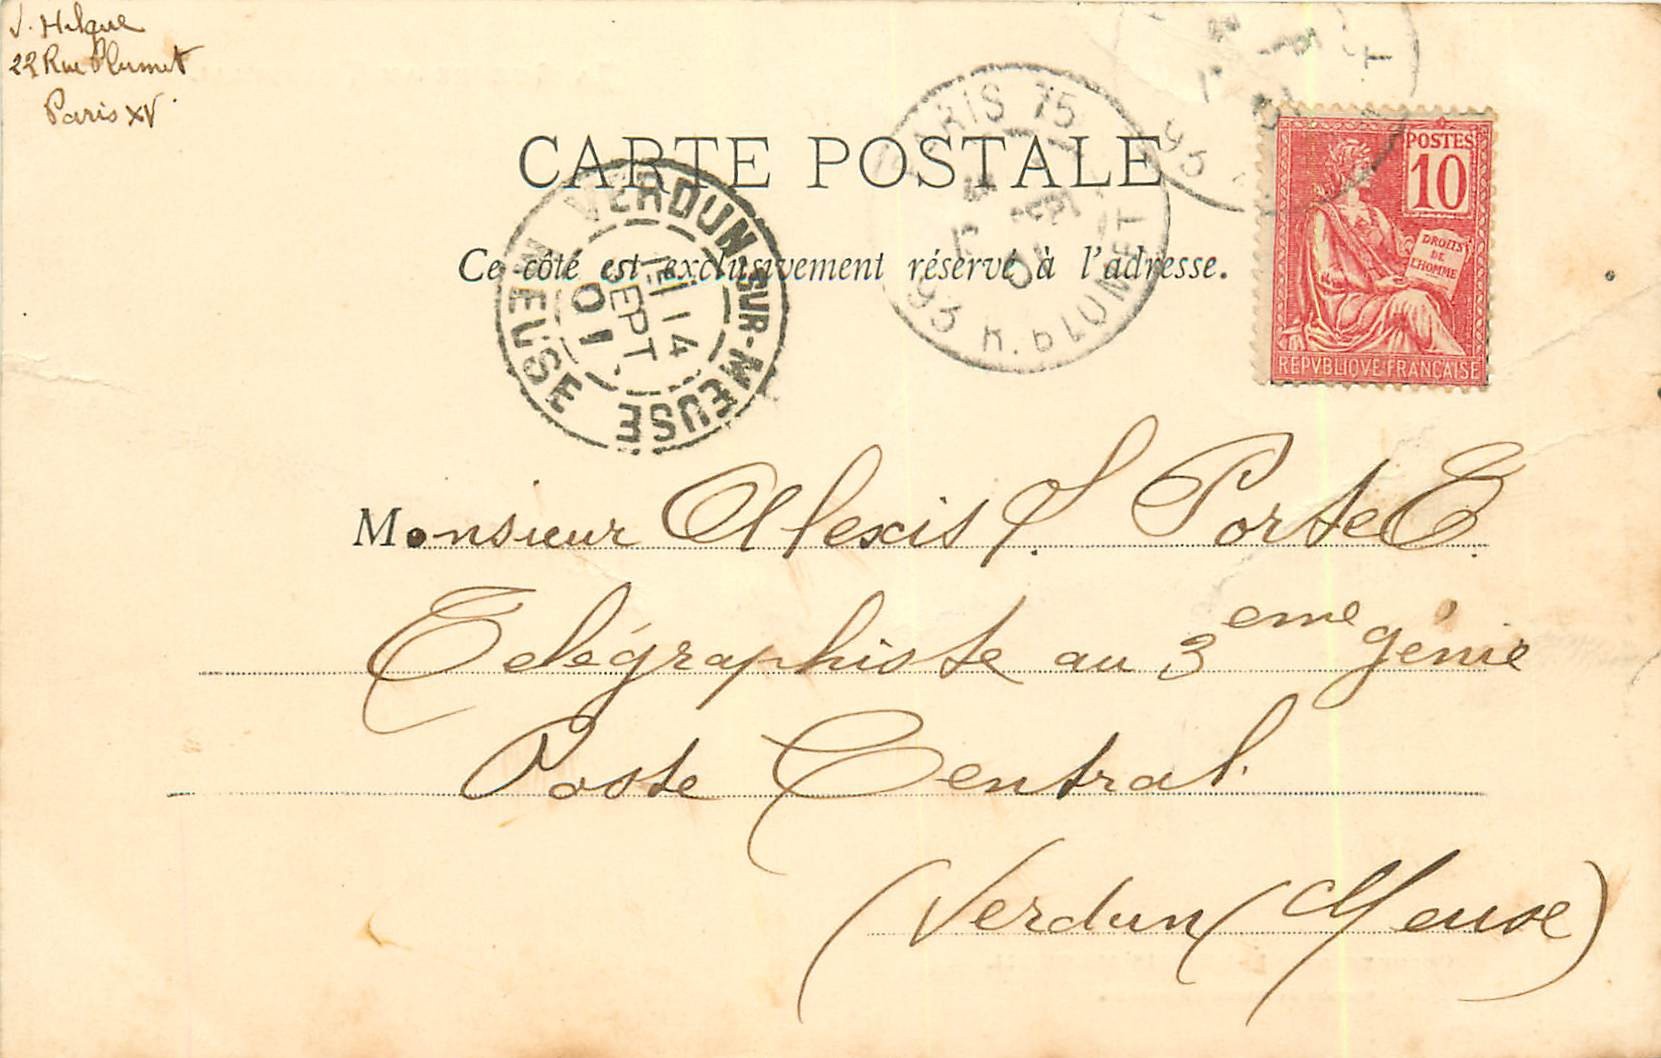 22 Rue Plumet
Paris XV
CARTE POSTALE
Ce côté est exclusivement réservé à l'adresse.
PARIS 15
93 R. BLOMET
VERDUN-SUR-MEUSE
MEUSE
14
SEPT
01
POSTES
10
DROITS
DE
L'HOMME
REPVBLIQVE FRANÇAISE
Monsieur Alexis J. Porte
Télégraphiste au 3eme génie
Poste Central
(Verdun (Meuse)